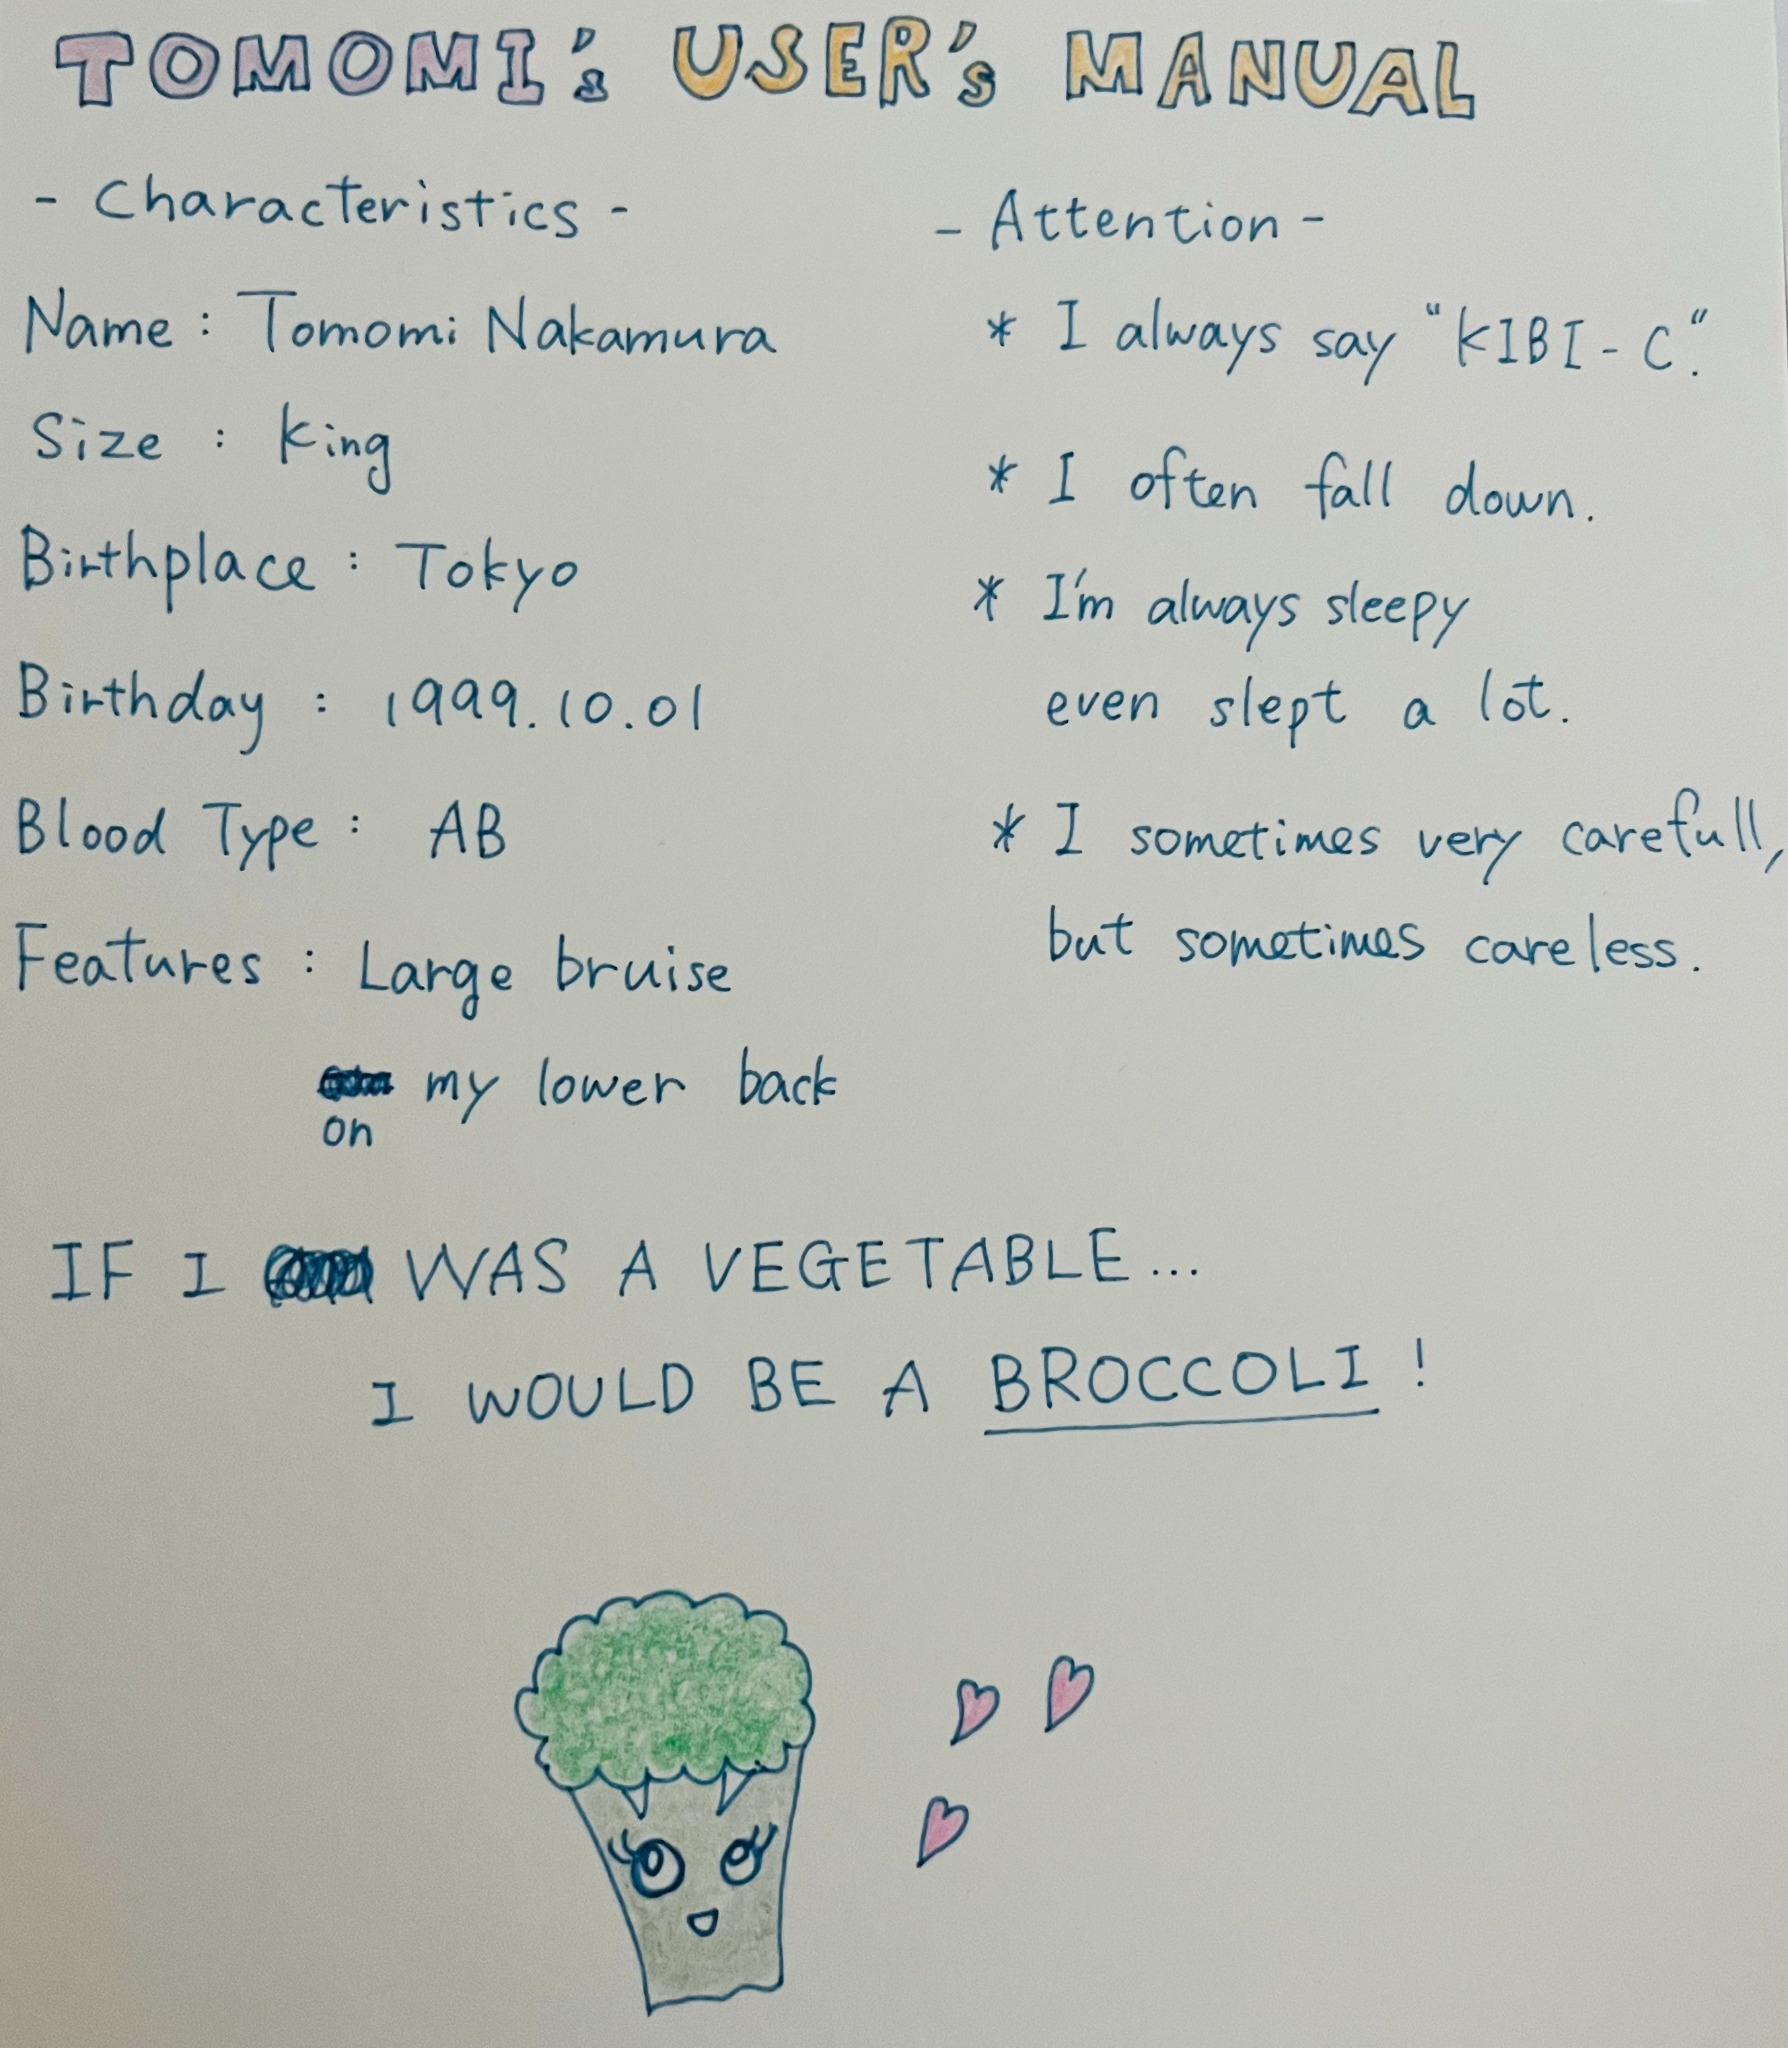 TOMOMI's USER's MANUAL
- Characteristics -
Name : Tomomi Nakamura
Size : King
Birthplace : Tokyo
Birthday : 1999.10.01
Blood Type : AB
Features : Large bruise
my lower back
on
- Attention -
* I always say "KIBI-C."
* I often fall down.
* I'm always sleepy
even slept a lot.
* I sometimes very carefull,
but sometimes careless.
IF I WAS A VEGETABLE...
I WOULD BE A BROCCOLI !